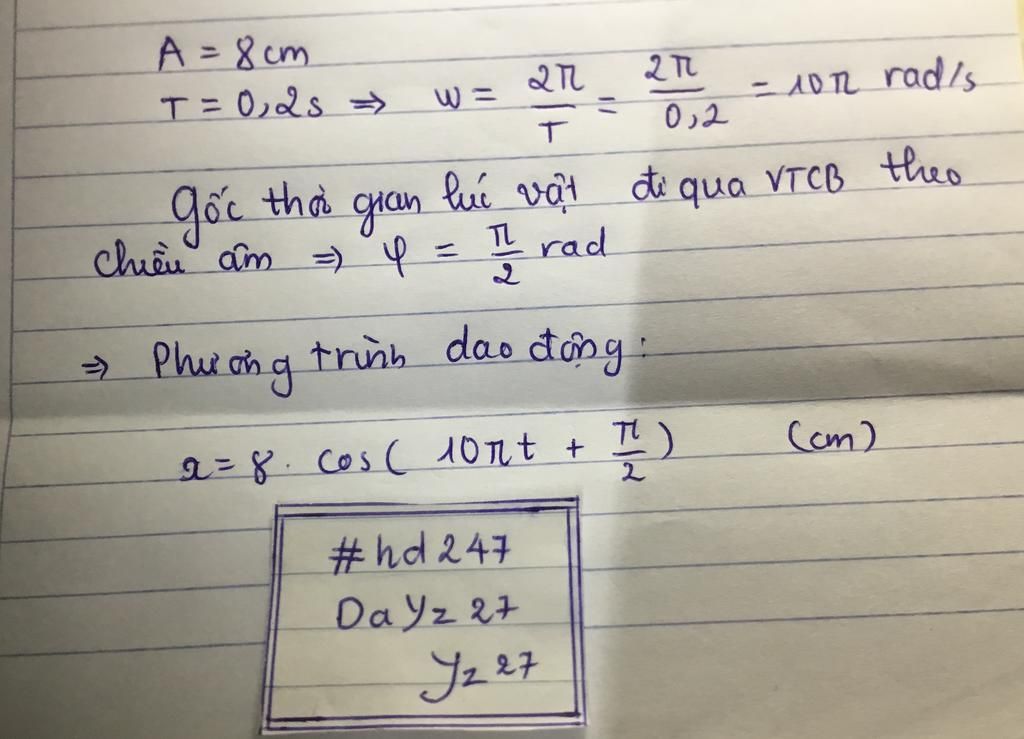 A = 8cm
T = 0,2s ⇒ w = 2π/T = 2π/0,2 = 10π rad/s
Gốc thời gian lúc vật đi qua VTCB theo
chiều âm ⇒ φ = π/2 rad
⇒ Phương trình dao động:
x = 8. cos( 10πt + π/2 ) (cm)
#hd247
DaYz27
Yz27